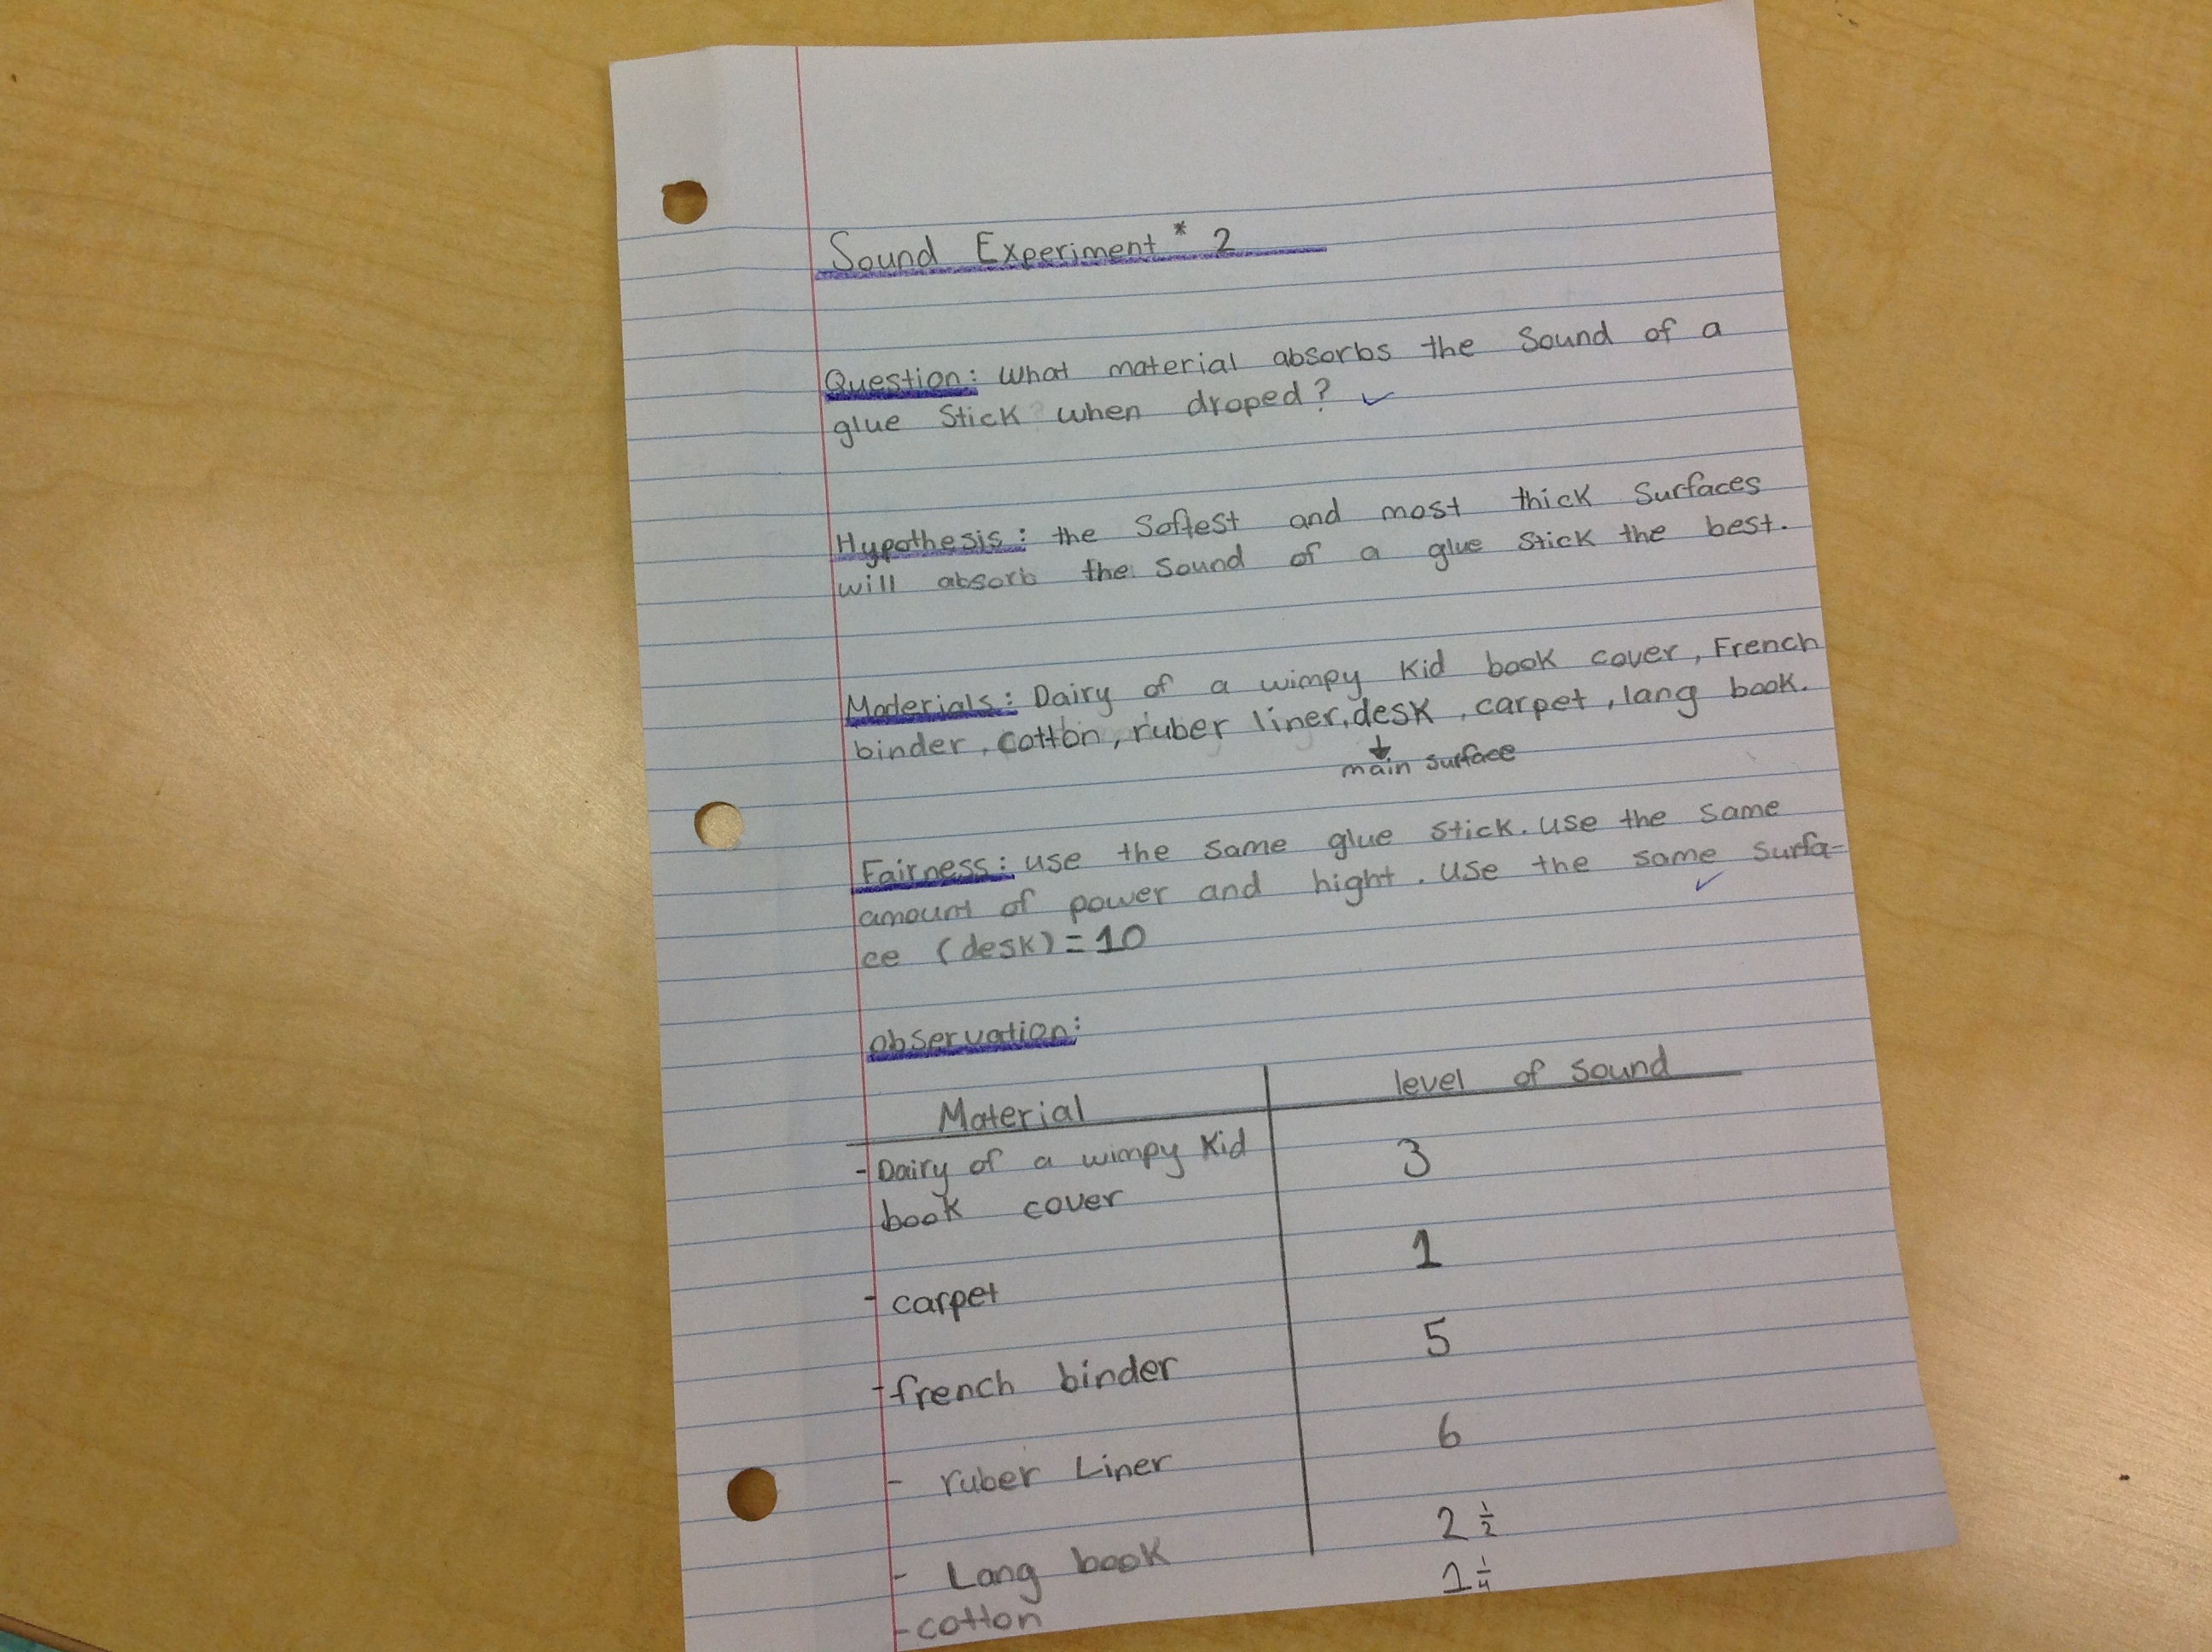 Sound Experiment * 2
Question: What material absorbs the Sound of a
glue Stick when droped? ✓
Hypothesis: the Softest and most thick Surfaces
will absorb the Sound of a glue Stick the best.
Moderials: Dairy of a wimpy Kid book cover, French
binder, cotton, ruber liner, desk, carpet, lang book.
main surface
Fairness: use the same glue stick. use the same
amount of power and hight. Use the same surfa-
ce (desk) = 10 ✓
observation:
Material level of Sound
- Dairy of a wimpy Kid 3
book cover
- carpet 1
- french binder 5
- ruber Liner 6
- Lang book 2 1/2
- cotton 1 1/4